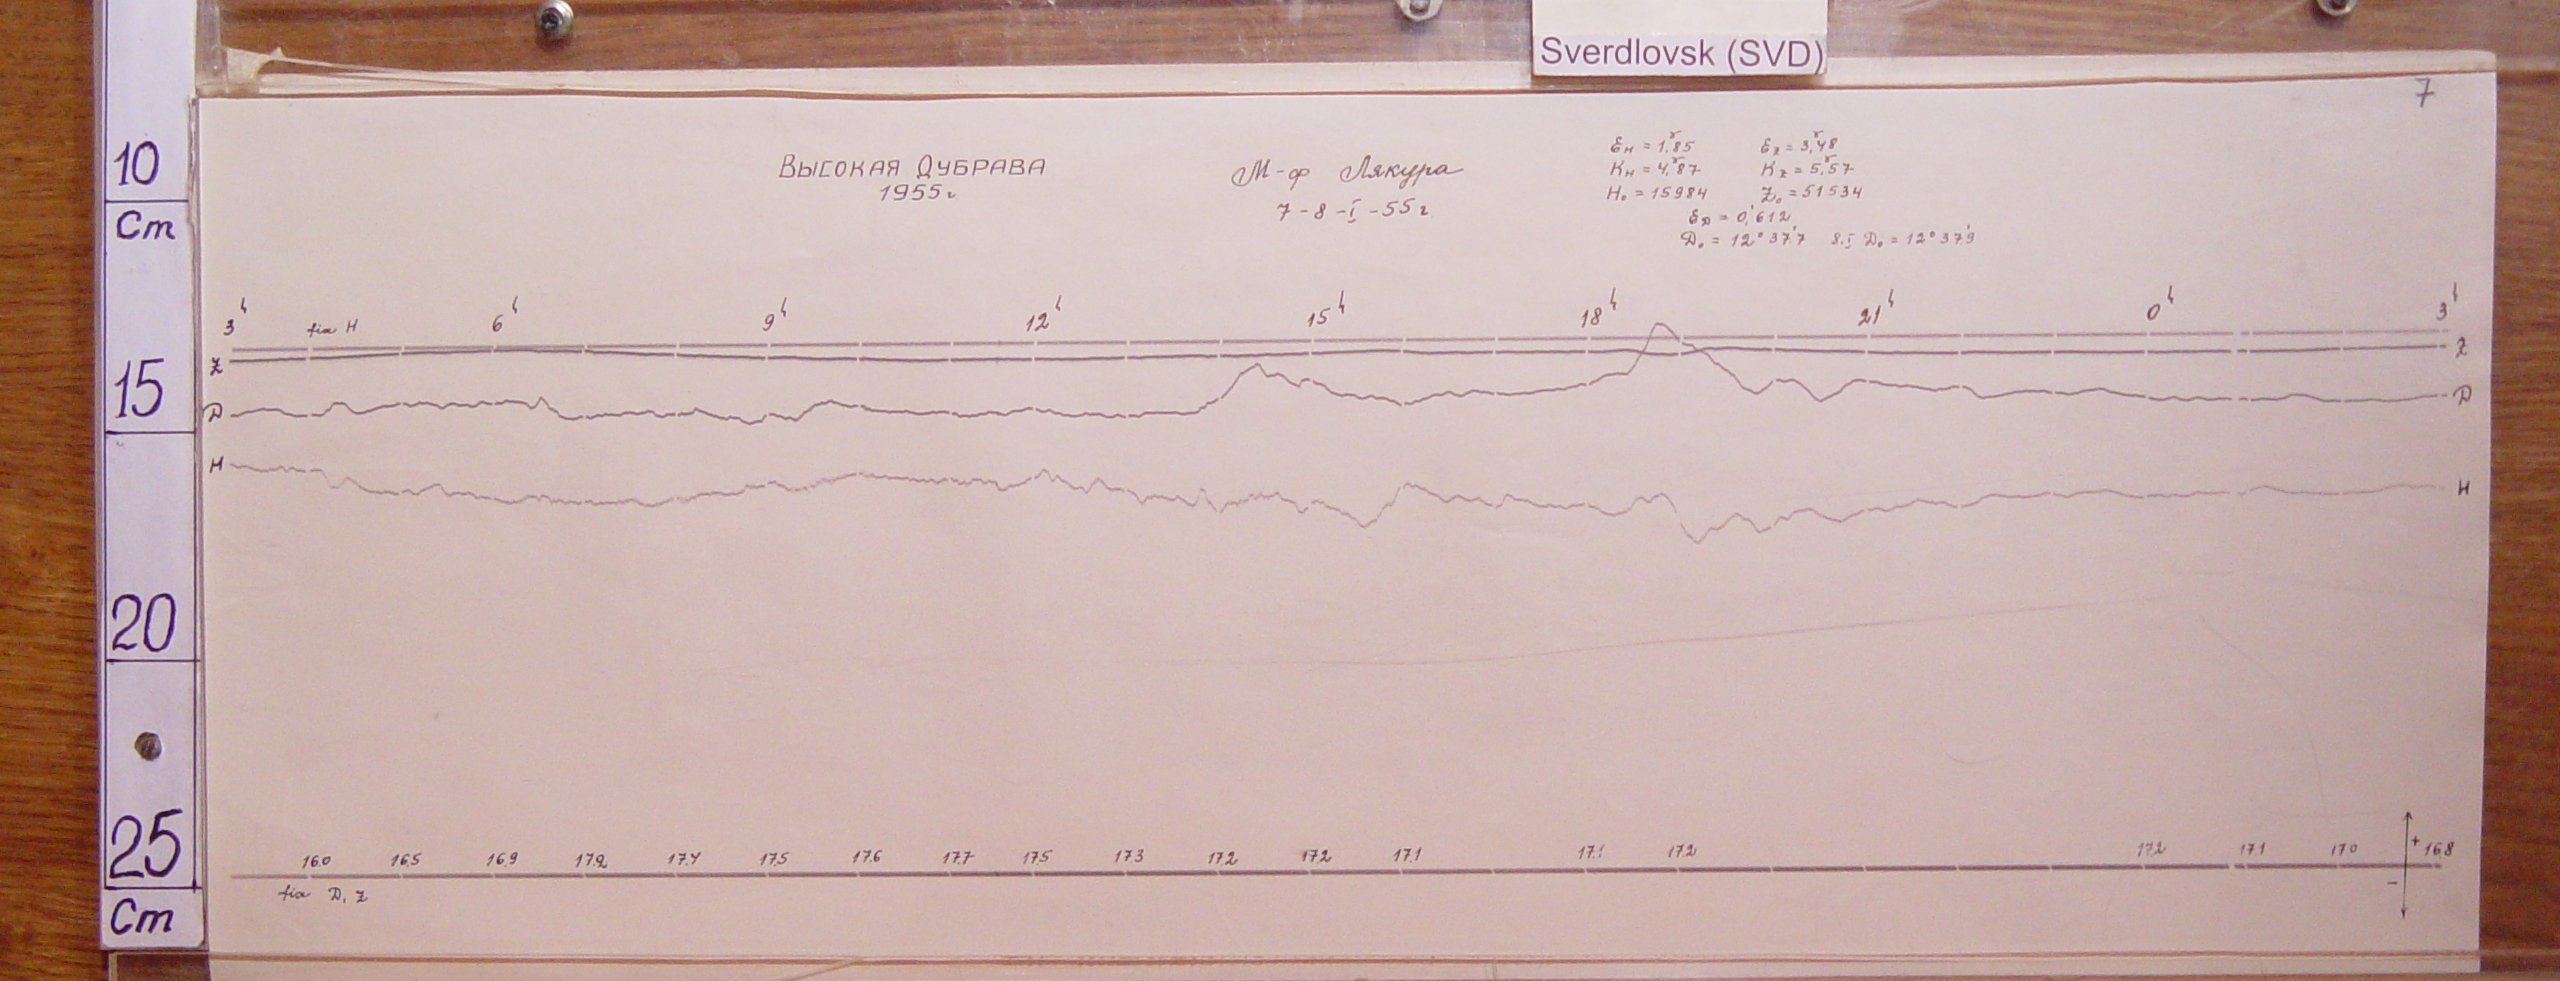 Sverdlovsk (SVD)
7
10
Cm
15
20
25
Cm
Высокая Дубрава
1955г
М-ф Лякура
7-8-I-55г
Ɛн = 1,ᵞ85 Ɛz = 3,ᵞ48
Kн = 4,ᵞ87 Kz = 5,ᵞ57
H₀ = 15984 Z₀ = 51534
ƐD = 0,'612
D₀ = 12°37,'7 8.I D₀ = 12°37,'9
3ч 6ч 9ч 12ч 15ч 18ч 21ч 0ч 3ч
fix H
Z Z
D D
H H
16.0 16.5 16.9 17.2 17.4 17.5 17.6 17.7 17.5 17.3 17.2 17.2 17.1 17.1 17.2 17.2 17.1 17.0 16.8
+
-
fix D, Z